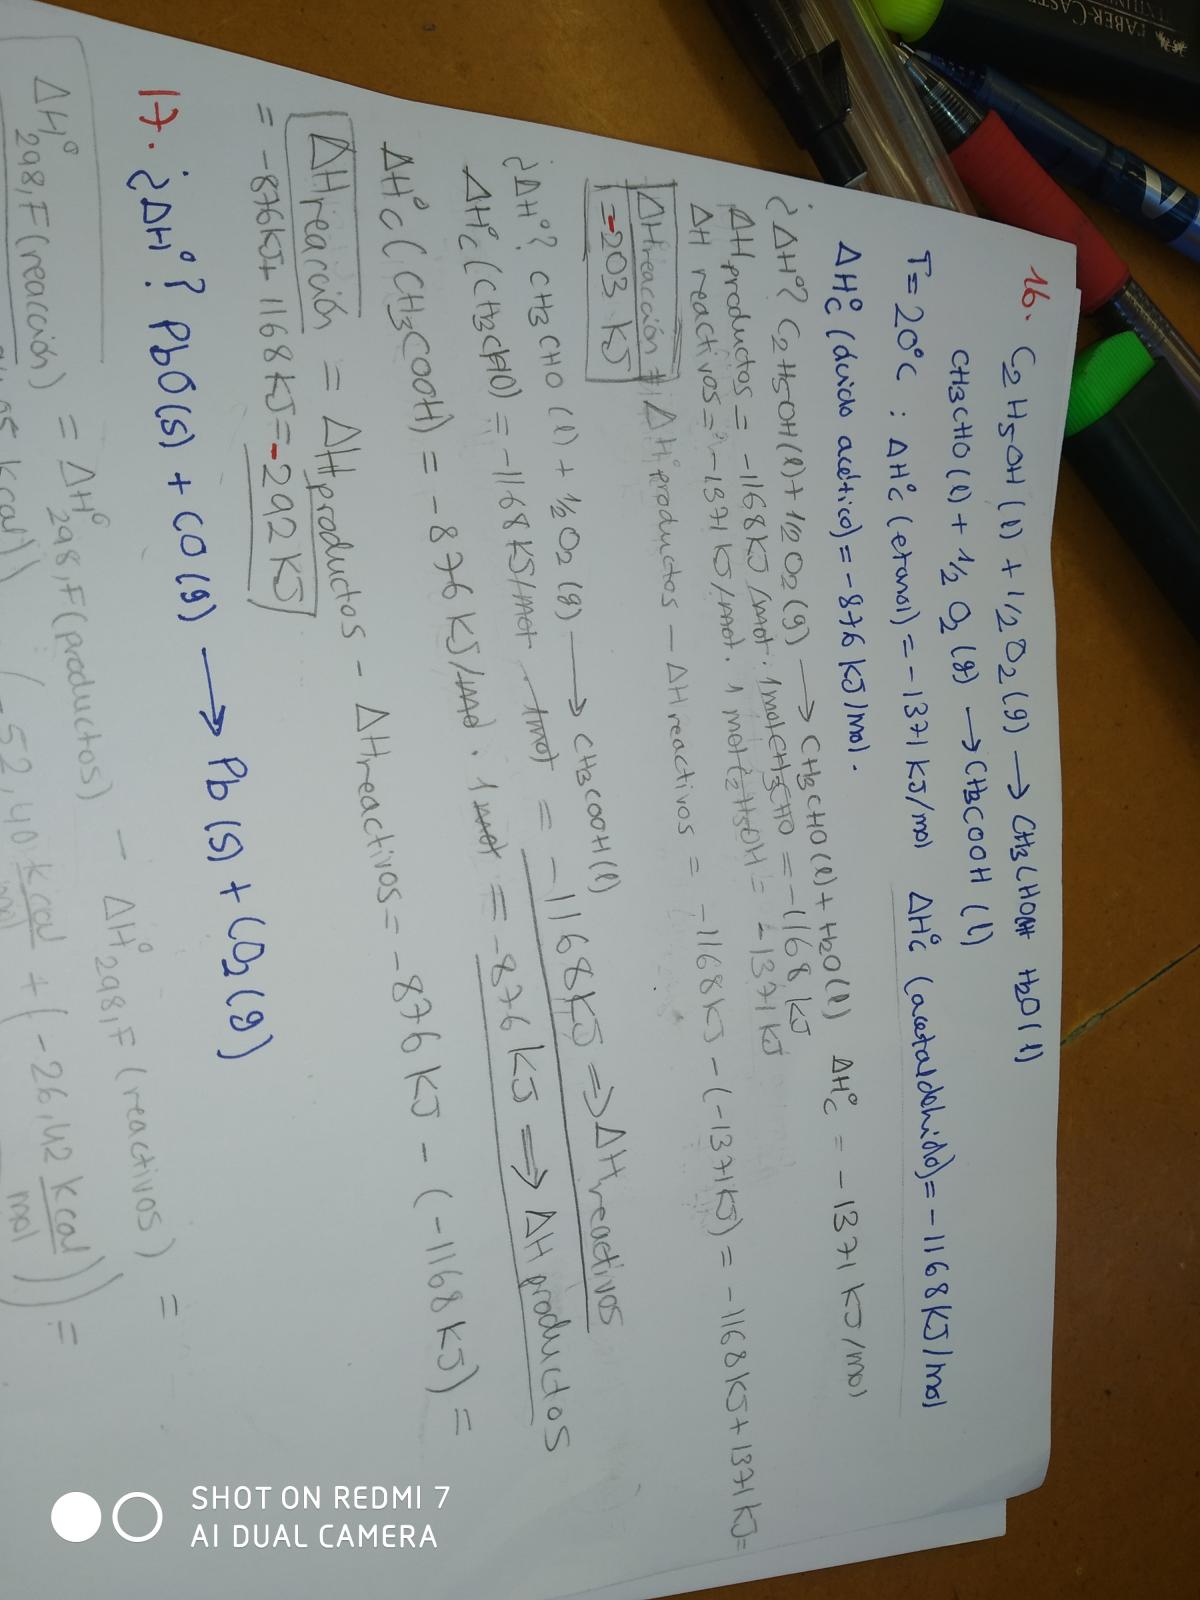 16. C2H5OH(l) + 1/2O2(g) → CH3CHO H2O(l)
CH3CHO(l) + 1/2 O2(g) → CH3COOH(l)
T=20°C : ΔH°c (etanol) = -1371 KJ/mol ΔH°c (acetaldehido) = -1168KJ/mol
ΔH°c (ácido acético) = -876 KJ/mol.
¿ΔH°? C2H5OH(l) + 1/2 O2(g) → CH3CHO(l) + H2O(l) ΔH°c = -1371 KJ/mol
ΔHproductos = -1168KJ/mol. 1molCH3CHO = -1168 KJ
ΔH reactivos = -1371 KJ/mol. 1 mol C2H5OH = -1371 KJ
ΔHreacción = ΔHproductos - ΔHreactivos = -1168KJ - (-1371KJ) = -1168KJ + 1371KJ=
=-203 KJ
¿ΔH°? CH3CHO(l) + 1/2O2(g) → CH3COOH(l)
ΔH°c (CH3CHO) = -1168KJ/mol. 1mol = -1168KJ ⇒ ΔHreactivos
ΔH°c (CH3COOH) = -876 KJ/mol. 1mol = -876 KJ ⇒ ΔH productos
ΔHreacción = ΔHproductos - ΔHreactivos = -876KJ - (-1168KJ) =
= -876KJ + 1168KJ = -292KJ
17. ¿ΔH°? PbO(s) + CO(g) → Pb(s) + CO2(g)
ΔH°298,F(reacción) = ΔH°298,F(productos) - ΔH°298,F(reactivos) =
kcal) (-52,40 kcal/mol + (-26,42 kcal/mol)) =
FABER-CASTELL
SHOT ON REDMI 7
AI DUAL CAMERA